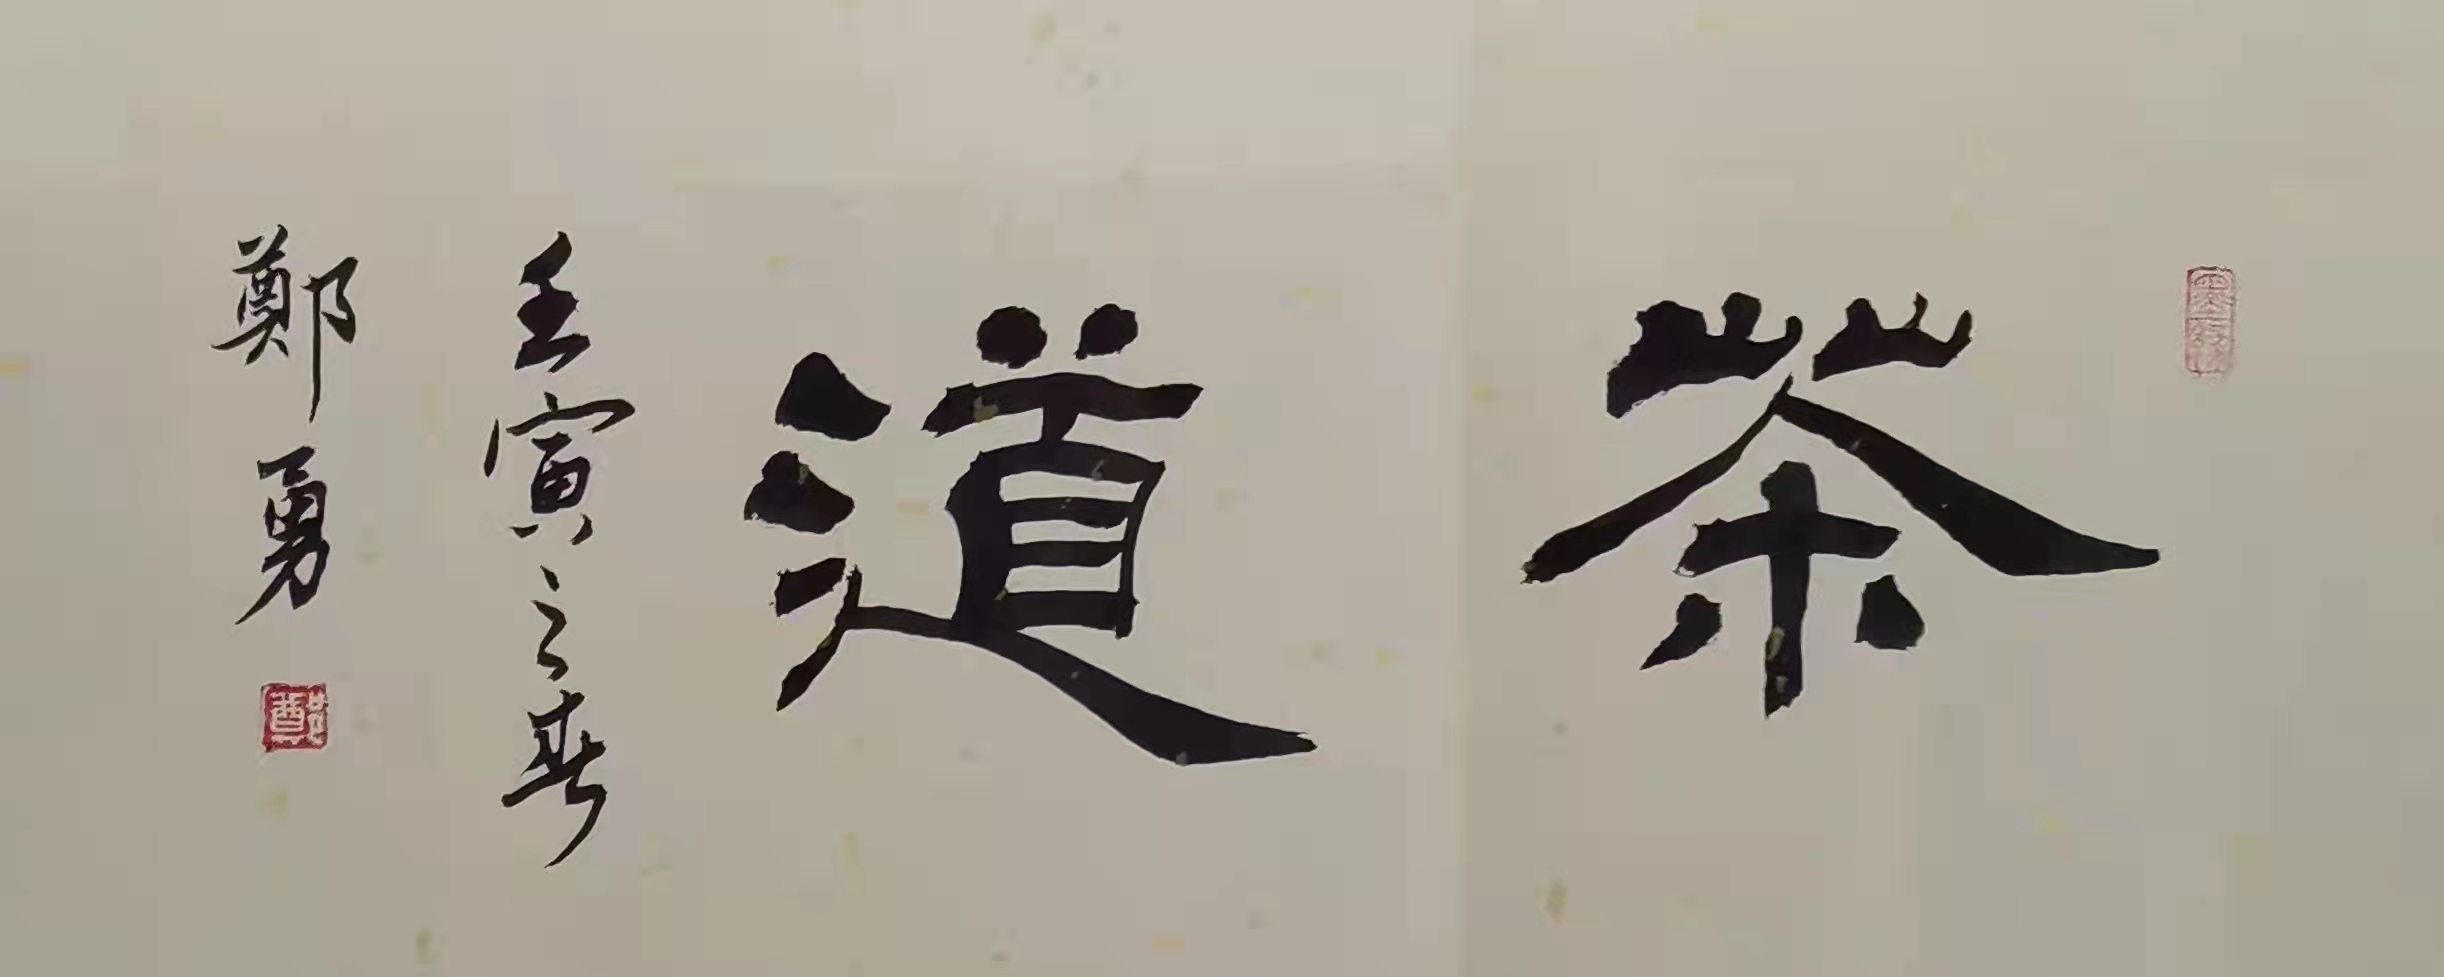 茶道
壬寅之春
鄭勇
鄭